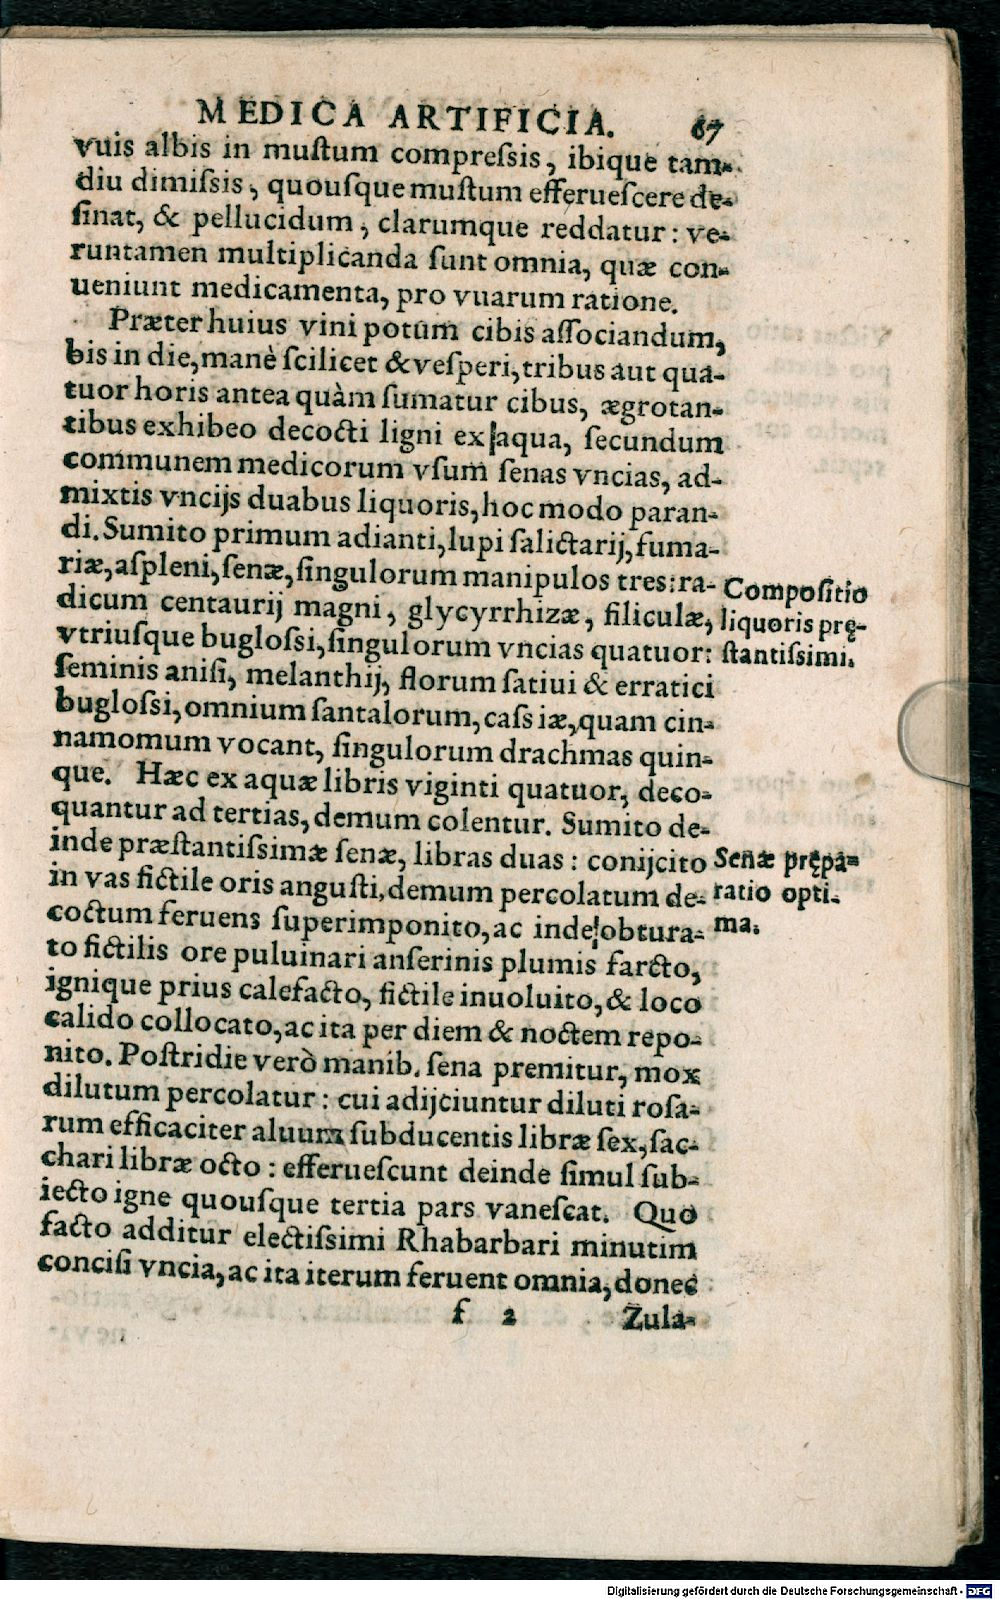 MEDICA ARTIFICIA. 67
vuis albis in muſtum compreſsis, ibique tam-
diu dimiſsis, quouſque muſtum efferueſcere de-
ſinat, & pellucidum, clarumque reddatur: ve-
runtamen multiplicanda ſunt omnia, quæ con-
ueniunt medicamenta, pro vuarum ratione.
Præter huius vini potum cibis aſſociandum,
bis in die, manè ſcilicet & veſperi, tribus aut qua-
tuor horis antea quàm ſumatur cibus, ægrotan-
tibus exhibeo decocti ligni ex aqua, ſecundum
communem medicorum vſum ſenas vncias, ad-
mixtis vncijs duabus liquoris, hoc modo paran-
di. Sumito primum adianti, lupi ſalictarij, fuma-
riæ, aſpleni, ſenæ, ſingulorum manipulos tres: ra-
dicum centaurij magni, glycyrrhizæ, filiculæ,
vtriuſque bugloſsi, ſingulorum vncias quatuor:
ſeminis aniſi, melanthij, florum ſatiui & erratici
bugloſsi, omnium ſantalorum, caſsiæ, quam cin-
namomum vocant, ſingulorum drachmas quin-
que. Hæc ex aquæ libris viginti quatuor, deco-
quantur ad tertias, demum colentur. Sumito de-
inde præſtantiſsimæ ſenæ, libras duas: conijcito
in vas fictile oris anguſti, demum percolatum de-
coctum feruens ſuperimponito, ac inde obtura-
to fictilis ore puluinari anſerinis plumis farcto,
ignique prius calefacto, fictile inuoluito, & loco
calido collocato, ac ita per diem & noctem repo-
nito. Poſtridie verò manib. ſena premitur, mox
dilutum percolatur: cui adijciuntur diluti roſa-
rum efficaciter aluum ſubducentis libræ ſex, ſac-
chari libræ octo: efferueſcunt deinde ſimul ſub-
iecto igne quouſque tertia pars vaneſcat. Quo
facto additur electiſsimi Rhabarbari minutim
conciſi vncia, ac ita iterum feruent omnia, donec
f 2 Zula-
Compoſitio
liquoris prę-
ſtantiſsimi.
Senæ prępa-
ratio opti-
ma.
Digitalisierung gefördert durch die Deutsche Forschungsgemeinschaft - DFG